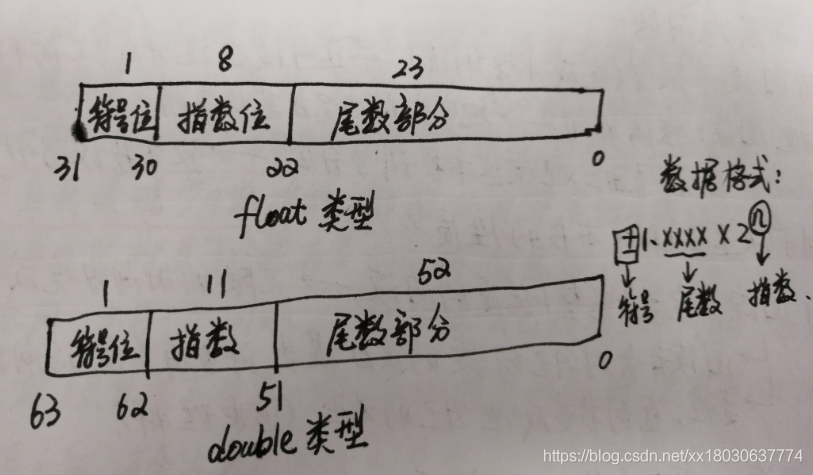 1 8 23
符号位 指数位 尾数部分
31 30 22 0
float 类型
数据格式:
±1.xxxx x 2ⁿ
符号 尾数 指数.
1 11 52
符号位 指数 尾数部分
63 62 51 0
double 类型
https://blog.csdn.net/xx18030637774